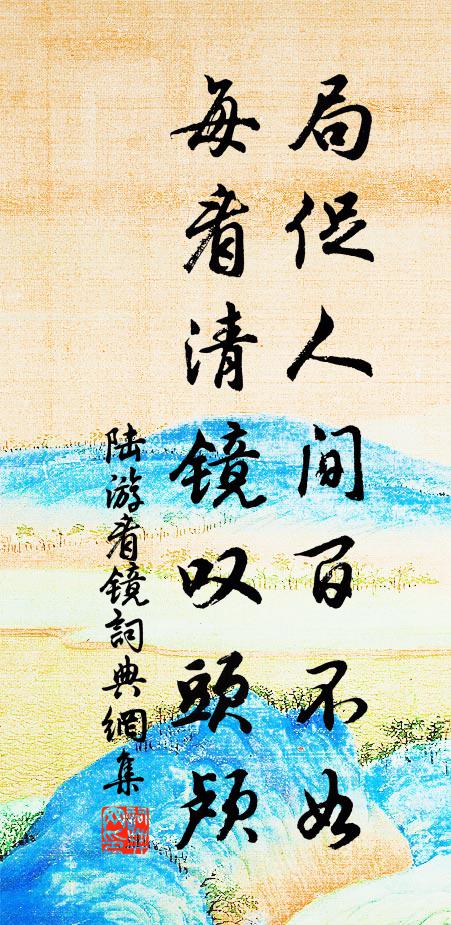 局促人间百不如
每看清镜叹頭颅
陆游看镜詞典網集